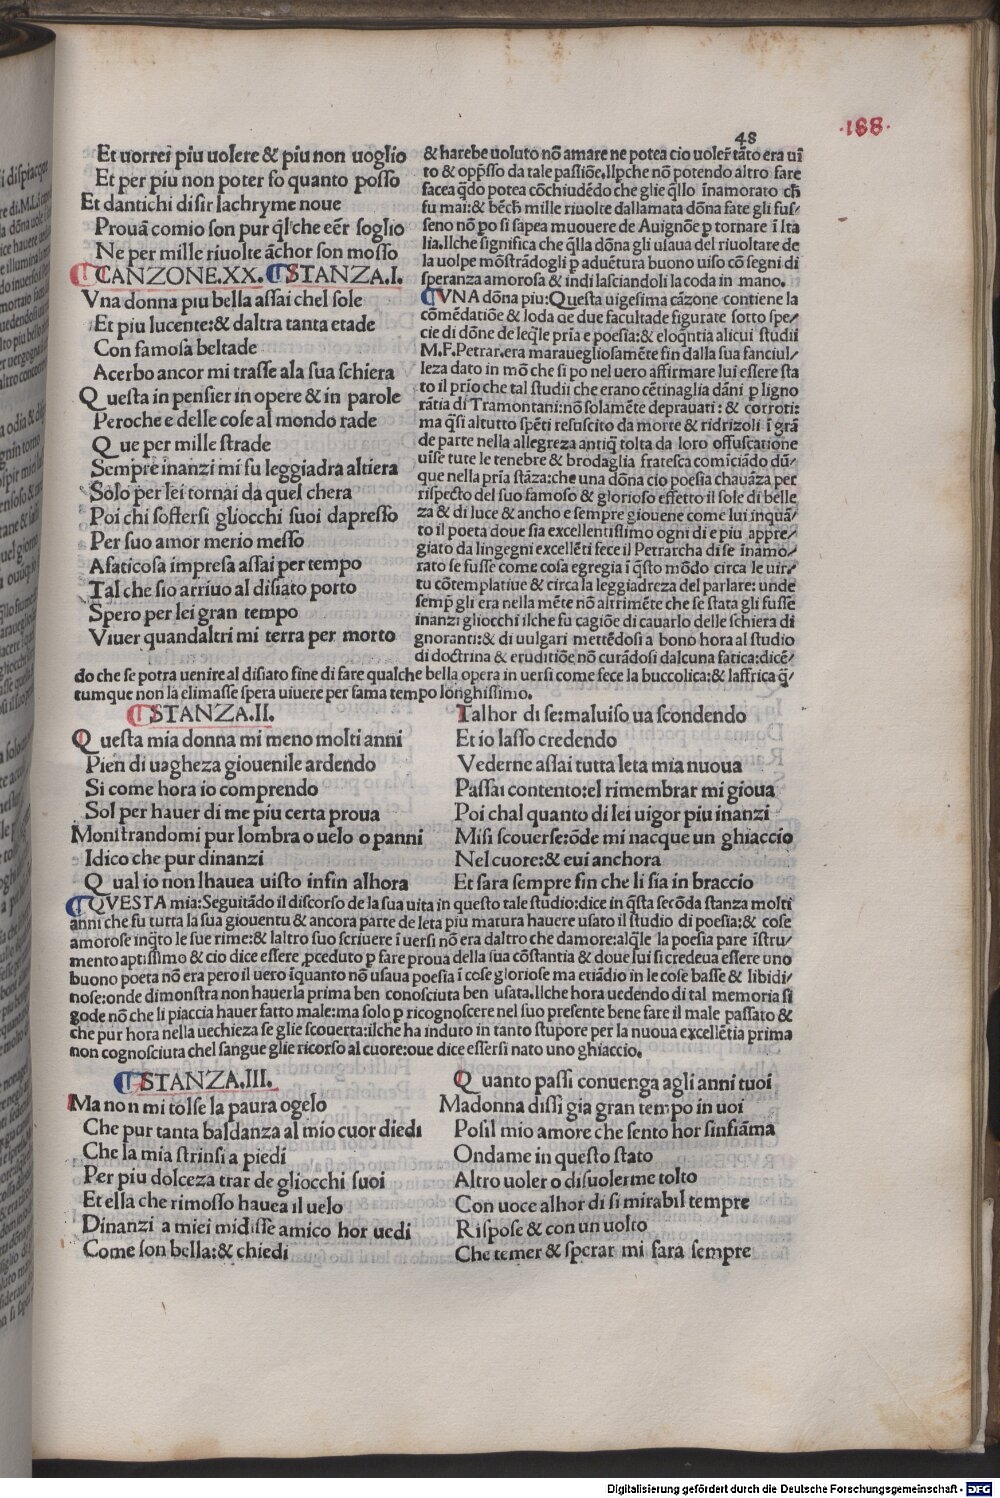 48
·188·
Et uorrei piu uolere & piu non uoglio
Et per piu non poter fo quanto posso
Et dantichi disir lachryme noue
Prouã comio son pur ql̃che eer̃ soglio
Ne per mille riuolte ãchor son mosso
CANZONE.XX. STANZA.I.
Vna donna piu bella assai chel sole
Et piu lucente:& daltra tanta etade
Con famosa beltade
Acerbo ancor mi trasse ala sua schiera
Questa in pensier in opere & in parole
Peroche e delle cose al mondo rade
Que per mille strade
Sempre inanzi mi fu leggiadra altiera
Solo per lei tornai da quel chera
Poi chi soffersi gliocchi suoi dapresso
Per suo amor merio messo
A faticosa impresa assai per tempo
Tal che sio arriuo al disiato porto
Spero per lei gran tempo
Viuer quandaltri mi terra per morto
& harebe uoluto nõ amare ne potea cio uoler̃ tãto era uĩ
to & opp̃sso da tale passiõe, Ilpche nõ potendo altro fare
facea q̃do potea cõchiudẽdo che glie q̃llo ĩnamorato ch̃
fu mai:& bẽch̃ mille riuolte dallamata dõna fate gli fus/
seno nõ po si sapea muouere de Auignõe p tornare ĩ Ita
lia. Ilche significa che q̃lla dõna gli usaua del riuoltare de
la uolpe mõstrãdogli p aduẽtura buono uiso cõ segni di
speranza amorosa & indi lasciandoli la coda in mano.
VNA dõna piu: Questa uigesima cãzone contiene la
cõmẽdatiõe & loda de due facultade figurate sotto spe/
cie di dõne de leq̃le pria e poesia:& eloq̃ntia alicui studii
M.F. Petrar. era marauegliosamẽte fin dalla sua fanciul/
leza dato in mõ che si po nel uero affirmare lui essere sta
to il prĩo che tal studii che erano cẽtinaglia dãni p ligno
rãtia di Tramontani: nõ solamẽte deprauati: & corroti:
ma q̃si altutto spẽti resuscito da morte & ridrizoli ĩ grã
de parte nella allegreza antiq̃ tolta da loro offuscatione
uise tute le tenebre & brodaglia fratesca comiciãdo dũ/
que nella prĩa stãza: che una dõna cio poesia chauãza per
rispecto del suo famoso & glorioso effetto il sole di belle
za & di luce & ancho e sempre giouene come lui inquã/
to il poeta doue sia excellentissimo ogni di e piu appre/
giato da lingegni excellẽti fece il Petrarcha di se ĩnamo/
rato se fusse come cosa egregia ĩ q̃sto mõdo circa le uir/
tu cõtemplatiue & circa la leggiadreza del parlare: unde
semp̃ gli era nella mẽte nõ altrimẽte che se stata gli fusse
inanzi gliocchi ilche fu cagiõe di cauarlo delle schiera di
gnoranti:& di uulgari mettẽdosi a bono hora al studio
di doctrina & eruditiõe nõ curãdosi dalcuna fatica: dicẽ/
do che se potra uenire al disiato fine di fare qualche bella opera in uersi come fece la buccolica:& laffrica q̃/
tumque non la elimasse spera uiuere per fama tempo longhissimo.
STANZA.II.
Questa mia donna mi meno molti anni
Pien di uagheza giouenile ardendo
Si come hora io comprendo
Sol per hauer di me piu certa proua
Monstrandomi pur lombra o uelo o panni
Idico che pur dinanzi
Qual io non lhauea uisto infin alhora
Talhor di se: maluiso ua scondendo
Et io lasso credendo
Vederne assai tutta leta mia nuoua
Passai contento: el rimembrar mi gioua
Poi chal quanto di lei uigor piu inanzi
Misi scouerse: õde mi nacque un ghiaccio
Nel cuore:& eui anchora
Et sara sempre fin che li sia in braccio
QVESTA mia: Seguitãdo il discorso de la sua uita in questo tale studio: dice in q̃sta secõda stanza molti
anni che fu tutta la sua giouentu & ancora parte de leta piu matura hauere usato il studio di poesia:& cose
amorose inq̃to le sue rime:& laltro suo scriuere ĩ uersi nõ era daltro che damore: alq̃le la poesia pare ĩstru/
mento aptissimo & cio dice essere pceduto p fare proua della sua cõstantia & doue lui si credeua essere uno
buono poeta nõ era pero il uero ĩquanto nõ usaua poesia ĩ cose gloriose ma etiãdio in le cose basse & libidi/
nose: onde dimonstra non hauerla prima ben conosciuta ben usata. Ilche hora uedendo di tal memoria si
gode nõ che li piaccia hauer fatto male: ma solo p ricognoscere nel suo presente bene fare il male passato &
che pur hora nella uechieza se glie scouerta: ilche ha induto in tanto stupore per la nuoua excellẽtia prima
non cognosciuta chel sangue glie ricorso al cuore: oue dice essersi nato uno ghiaccio.
STANZA.III.
Ma non mi tolse la paura ogelo
Che pur tanta baldanza al mio cuor diedi
Che la mia strinsi a piedi
Per piu dolceza trar de gliocchi suoi
Et ella che rimosso hauea il uelo
Dinanzi a miei midisse amico hor uedi
Come son bella:& chiedi
Quanto passi conuenga agli anni tuoi
Madonna dissi gia gran tempo in uoi
Posil mio amore che sento hor sinfiãma
Ondame in questo stato
Altro uoler o disuolerme tolto
Con uoce alhor di si mirabil tempre
Rispose & con un uolto
Che temer & sperar mi fara sempre
Digitalisierung gefördert durch die Deutsche Forschungsgemeinschaft - DFG